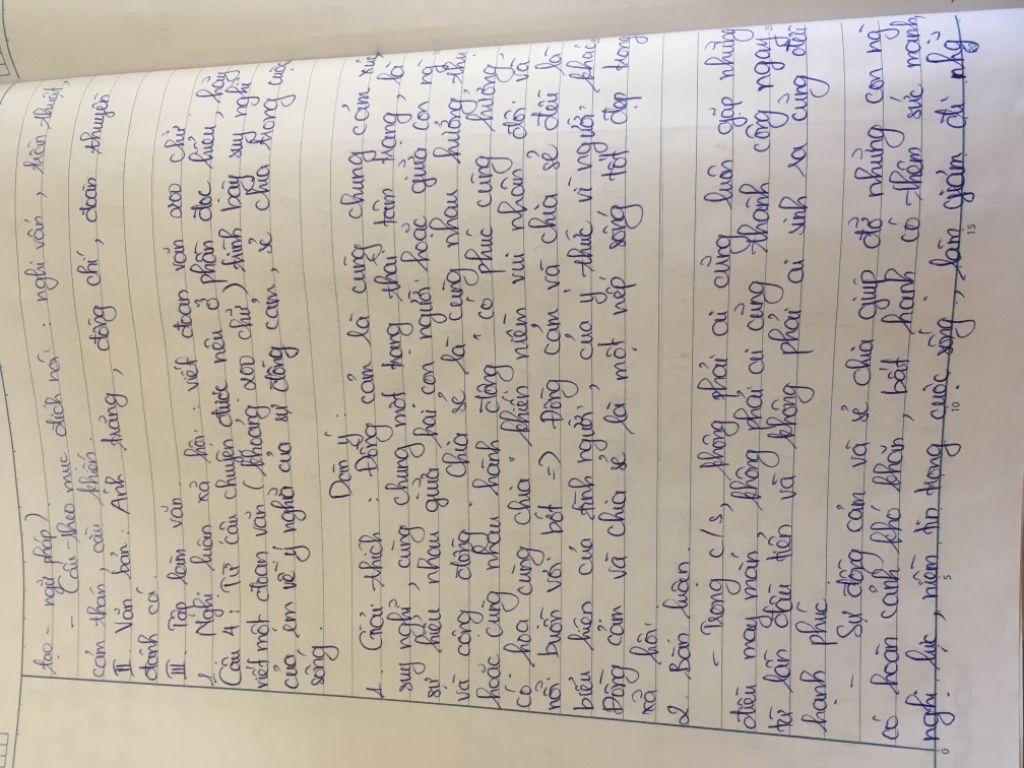 tạo - ngữ pháp)
- Câu theo mục đích nói: nghi vấn, trần thuật,
cảm thán, cầu khiến.
II Văn bản: Ánh trăng, đồng chí, đoàn thuyền
đánh cá.
III. Tập làm văn
1. Nghị luận xã hội: viết đoạn văn 200 chữ
Câu 4: Từ câu chuyện được nêu ở phần đọc hiểu, hãy
viết một đoạn văn (khoảng 200 chữ) trình bày suy nghĩ
của em về ý nghĩa của sự đồng cảm, sẻ chia trong cuộc
sống.
Dàn ý:
1. Giải thích: Đồng cảm là cùng chung cảm xúc
suy nghĩ, cùng chung một trạng thái tâm trạng, là
sự hiểu nhau giữa hai con người hoặc giữa con ng
và cộng đồng. Chia sẻ là cùng nhau hướng thụ
hoặc cùng nhau hành động "có phúc cùng hưởng
có họa cùng chia" khiến niềm vui nhân đôi và
nỗi buồn vơi bớt => Đồng cảm và chia sẻ đều là
biểu hiện của tình người, của ý thức vì người khác
Đồng cảm và chia sẻ là một nếp sống tốt đẹp trong
xã hội.
2. Bàn luận
- Trong c/s, không phải ai cũng luôn gặp những
điều may mắn, không phải ai cũng thành công ngay
từ lần đầu tiên và không phải ai sinh ra cũng đều
hạnh phúc.
- Sự đồng cảm và sẻ chia giúp đỡ những con ng
có hoàn cảnh khó khăn, bất hạnh có thêm sức mạnh,
nghị lực, niềm tin trong cuộc sống, làm giảm đi nhữ
0 5 10 15